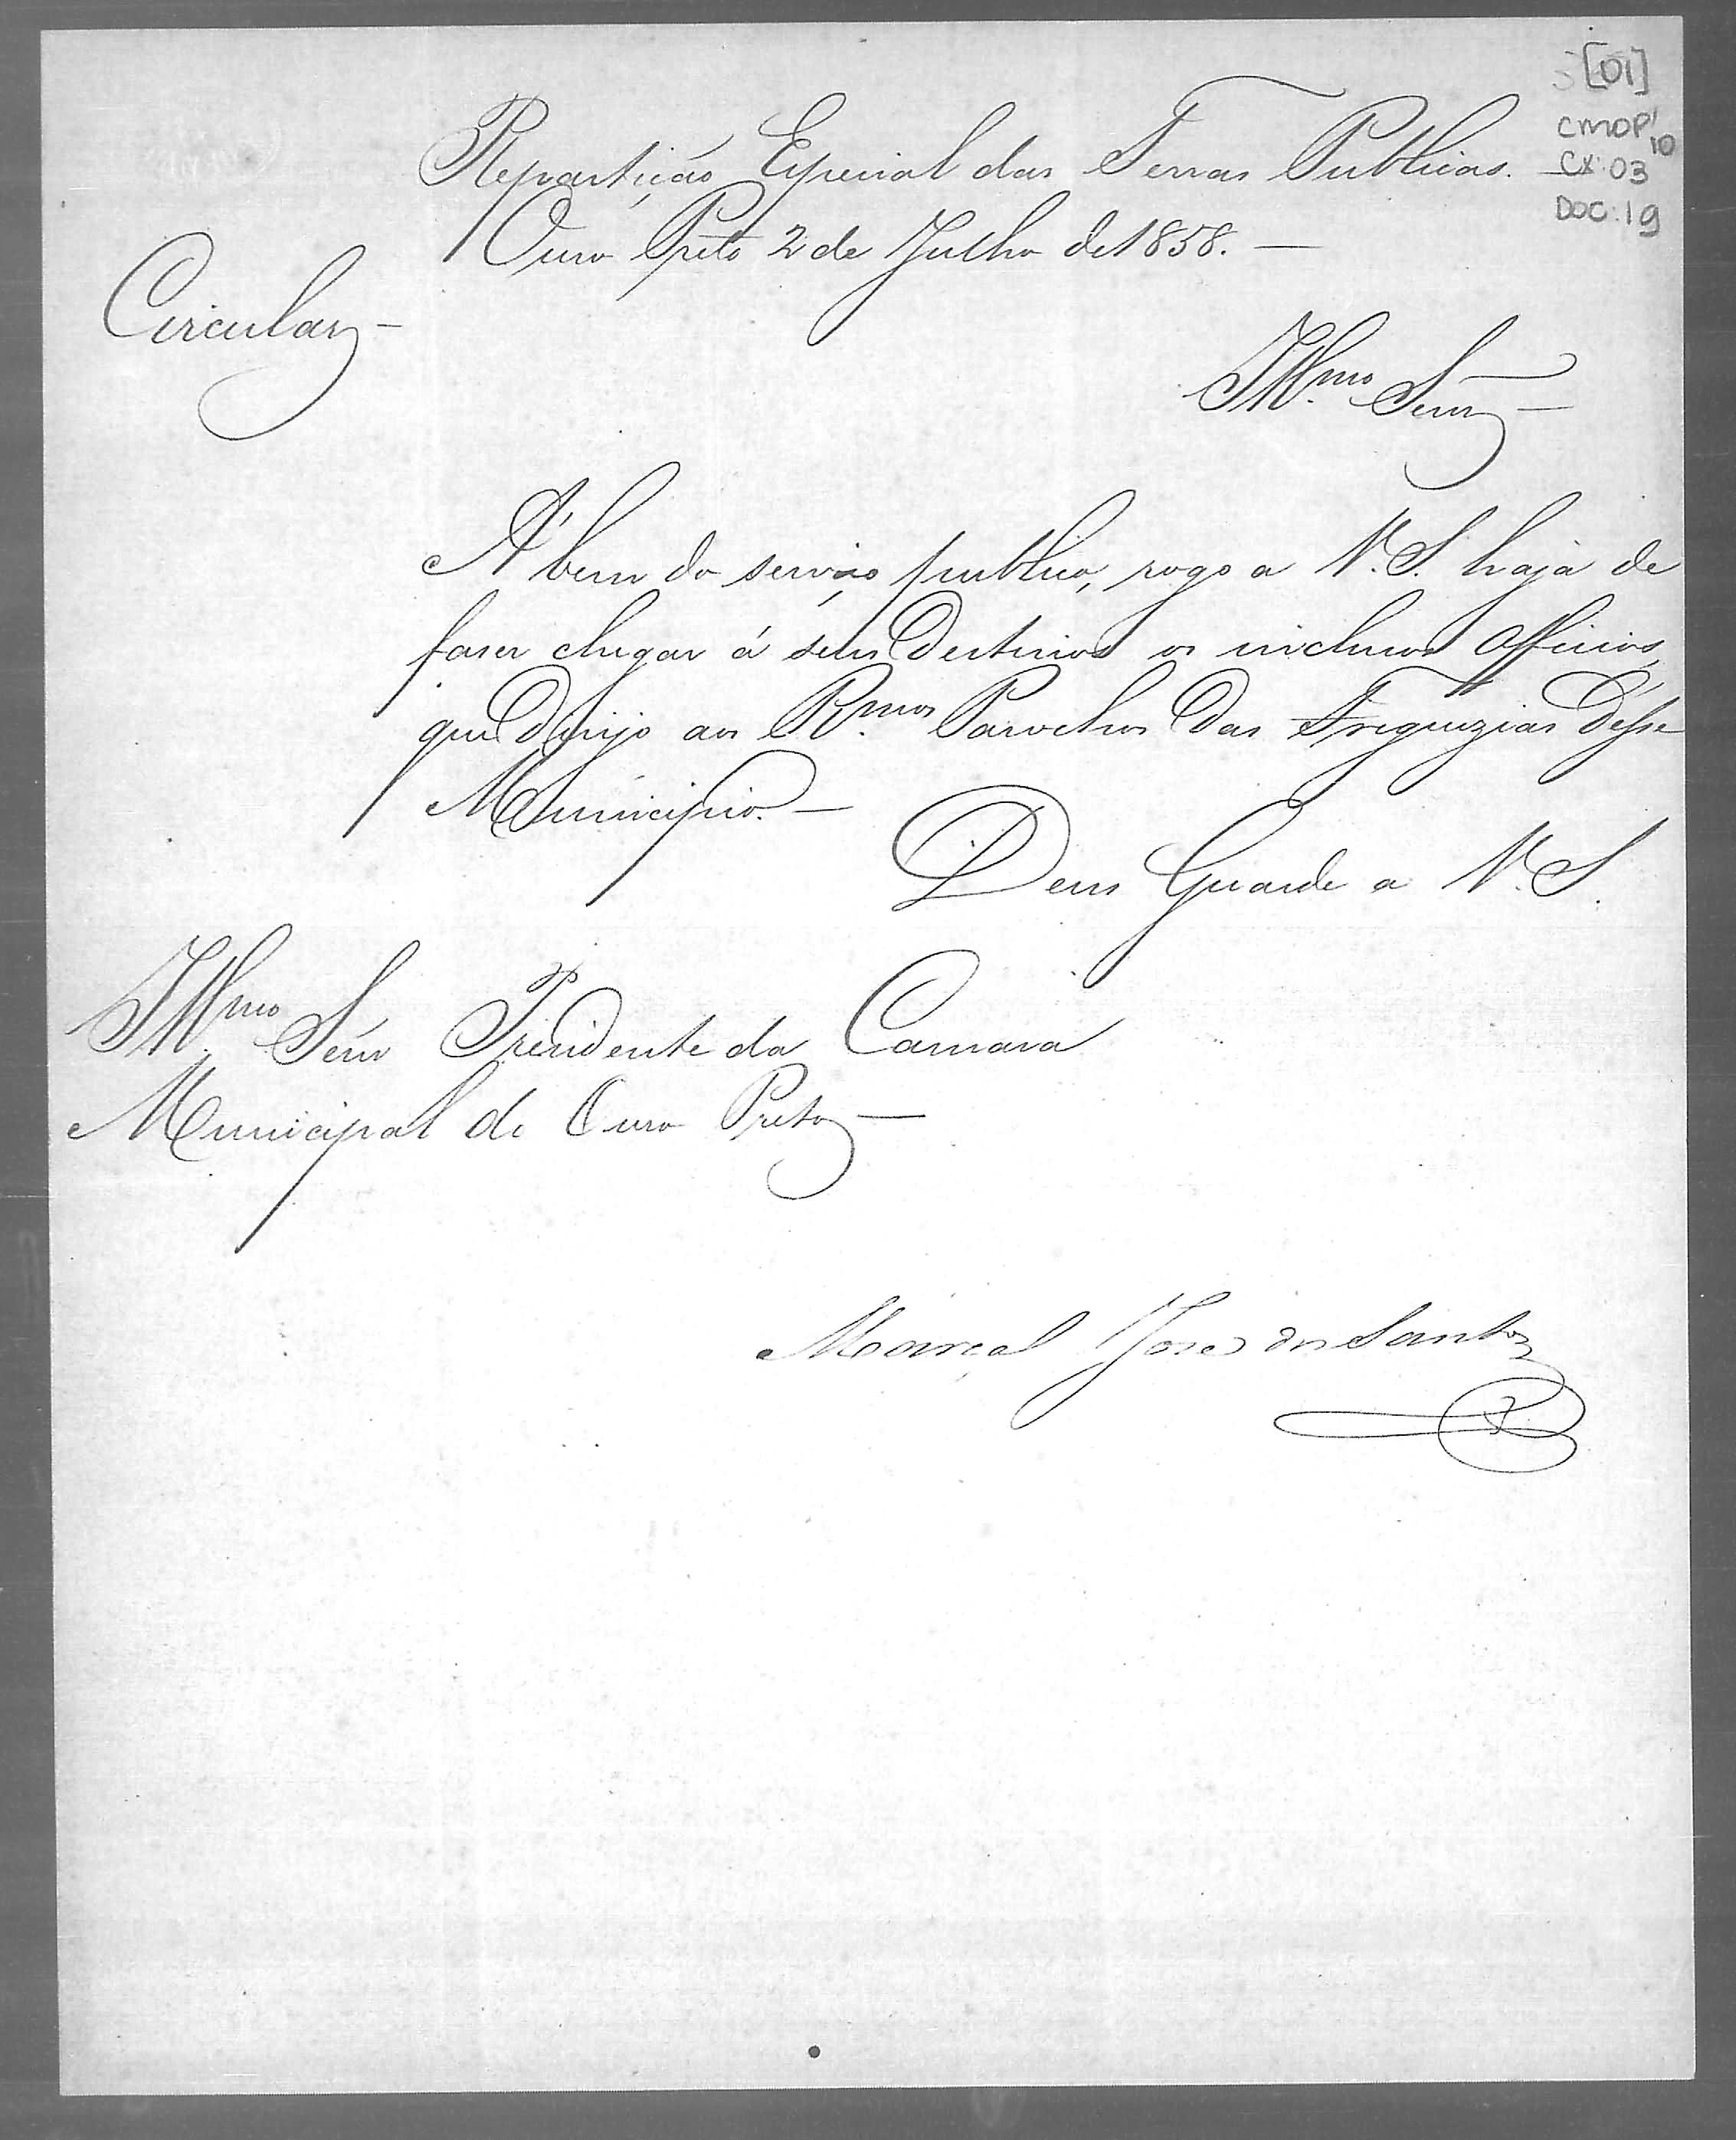 [01]
CMOP 10
CX: 03
DOC: 19
Repartição Especial das Terras Publicas.
Ouro Preto 2 de Julho de 1858. —
Circular —
Illmo Senr —
A' bem do serviço publico, rogo a V. S. haja de
faser chegar á seus Destinos os inclusos Officios,
que Dirijo aos R.mos Parochos Das Freguezias D'esse
Municipio. —
Deus Guarde a V. S.
Illmo Senr Presidente da Camara
Municipal de Ouro Preto —
Marçal José dos Santos